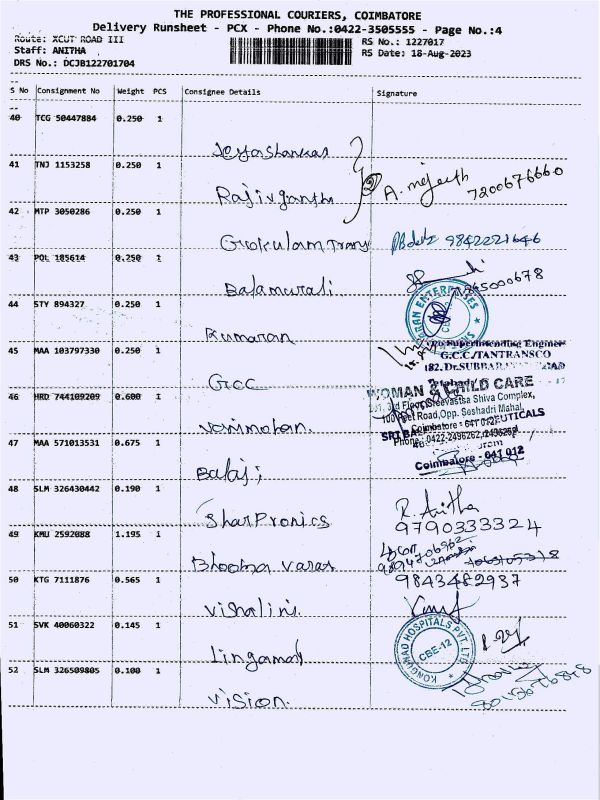 THE PROFESSIONAL COURIERS, COIMBATORE
Delivery Runsheet - PCX - Phone No.:0422-3505555 - Page No.:4
Route: XCUT ROAD III
RS No.: 1227017
Staff: ANITHA
RS Date: 18-Aug-2023
DRS No.: DCJB122701704
S No Consignment No Weight PCS Consignee Details Signature
40 TCG 50447884 0.250 1
Jeyashankar
41 TNJ 1153258 0.250 1
Rajivganthi
A. 7200676660
42 MTP 3050286 0.250 1
Gokulam Trans 9842221646
43 POL 185614 0.250 1
Balamurali
44 STY 894327 0.250 1
ENTERPRISES
Kumaran
45 MAA 103797330 0.250 1
Superintending Engineer
G.C.C./TANTRANSCO
GCC
46 HRD 744109209 0.600 1
WOMAN & CHILD CARE
3rd Floor, Sreevatsa Shiva Complex,
100 Feet Road, Opp. Seshadri Mahal,
Coimbatore - 641 012
Phone: 0422-2496262,
47 MAA 571013531 0.675 1
Coimbatore - 641 012
Balaji
48 SLM 326430442 0.190 1
R. Anitha
Sharpronics
9790333324
49 KMU 2592088 1.195 1
Bhooma Varas
50 KTG 7111876 0.565 1
9843482937
Vishalini
51 SVK 40060322 0.145 1
KONGUNAD HOSPITALS PVT. LTD.
CBE-12
Lingamal
52 SLM 326509805 0.100 1
Vision.